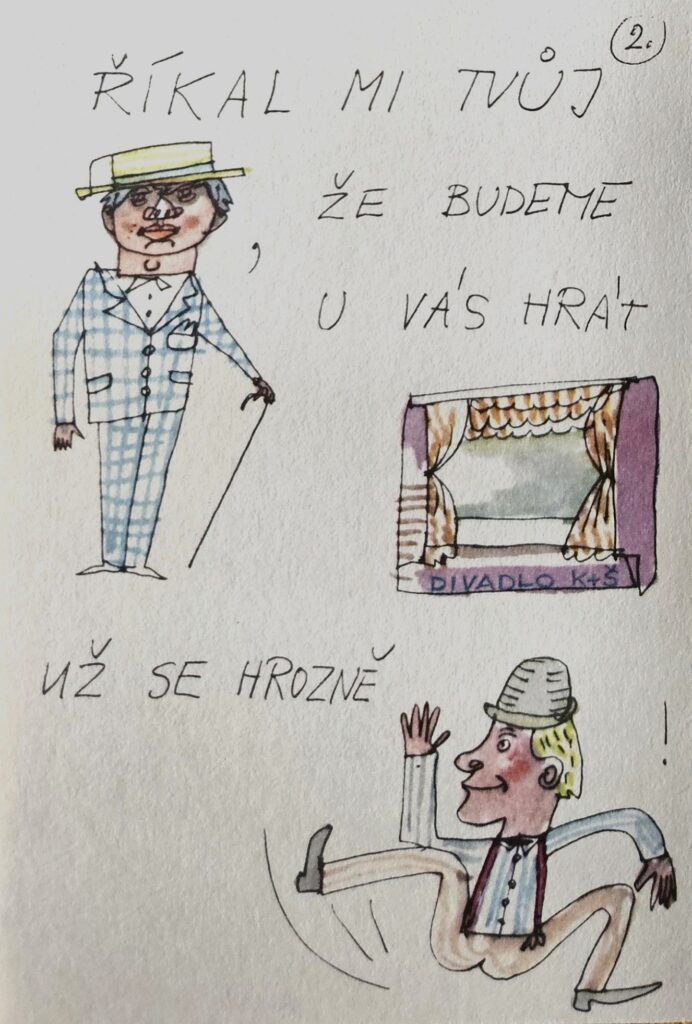 2.
ŘÍKAL MI TVŮJ
, ŽE BUDEME
U VÁS HRÁT
DIVADLO K+Š
UŽ SE HROZNĚ
!